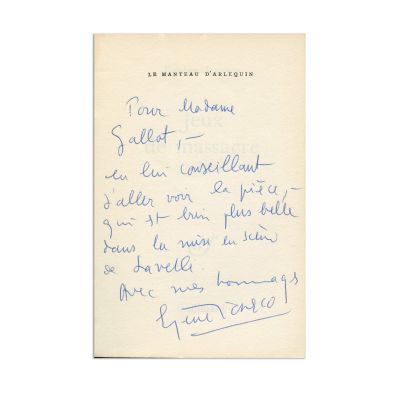 LE MANTEAU D'ARLEQUIN
Pour Madame
Gallot,—
en lui conseillant
d'aller voir la pièce,—
qui est bien plus belle
dans la mise en scène
de Lavelli.
Avec mes hommages
Eugène Ionesco
Jeux
de massacre